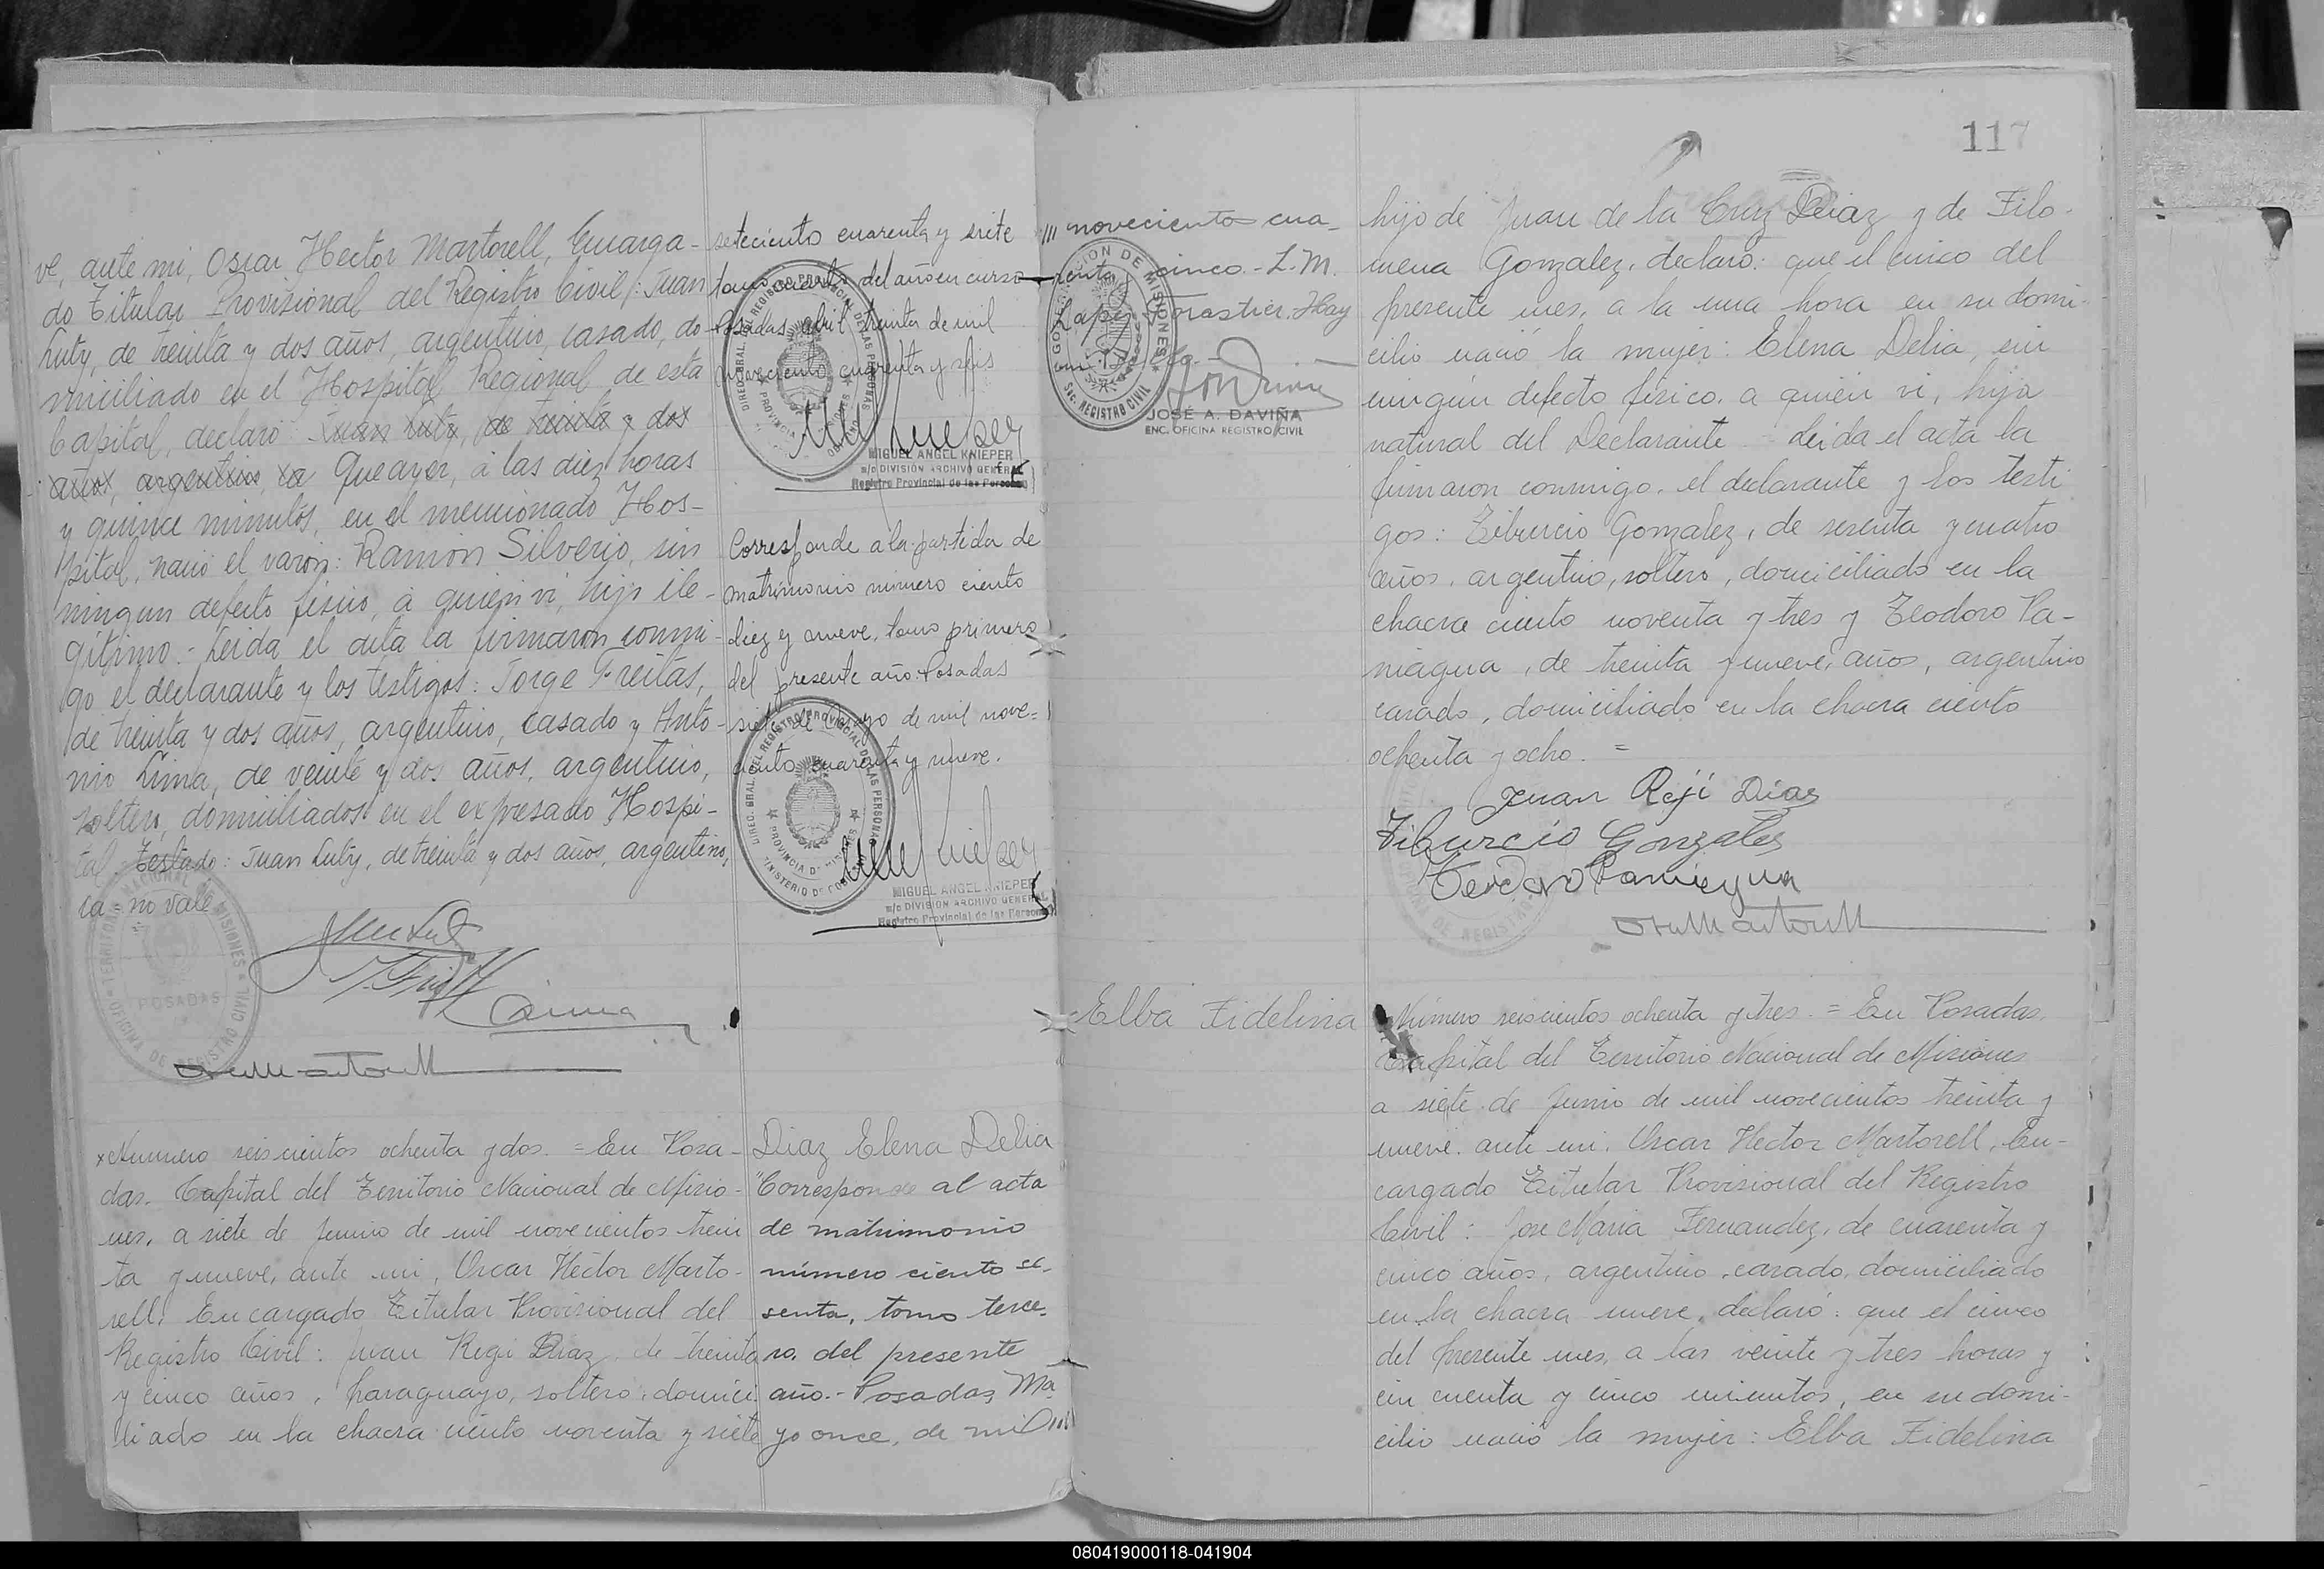 ve, ante mi, Oscar Hector Martorell, Encarga-
do Titular Provisional del Registro Civil: Juan
Luty, de treinta y dos años, argentino, casado, do-
miciliado en el Hospital Regional de esta
Capital, declaró: Juan Luty, de treinta y dos
años, argentino, ca Que ayer, á las diez horas
y quince minutos, en el mencionado Hos-
pital, nació el varón: Ramón Silverio, sin
ningun defecto fisico, á quien vi, hijo ile-
gitimo.- Leida el acta la firmaron conmi-
go el declarante y los testigos: Jorge Freitas,
de treinta y dos años, argentino, casado y Anto-
nio Lima, de veinte y dos años, argentino,
soltero, domiciliados en el expresado Hospi-
tal.- Testado: Juan Luty, de treinta y dos años, argentino,
ca - no vale
TERRITORIO NACIONAL DE MISIONES
POSADAS
OFICINA DE REGISTRO CIVIL
x Numero seiscientos ochenta y dos. = En Posa-
das. Capital del Territorio Nacional de Misio-
nes, a siete de Junio de mil novecientos trein
ta y nueve, ante mi, Oscar Héctor Marto-
rell, Encargado Titular Provisional del
Registro Civil: Juan Regi Diaz, de treinta
y cinco años, paraguayo, soltero, domici
liado en la chacra ciento noventa y siete
setecientos cuarenta y siete
tomo cuarto del año en curso
Posadas abril treinta de mil
novecientos cuarenta y seis
DIREC. GRAL. DEL REGISTRO PROVINCIAL DE LAS PERSONAS
PROVINCIA DE MISIONES
MIGUEL ANGEL KNIEPER
a/c DIVISIÓN ARCHIVO GENERAL
Registro Provincial de las Personas
Corresponde a la partida de
matrimonio número ciento
diez y nueve, tomo primero
del presente año. Posadas
siete de Mayo de mil nove-
ciento cuarenta y nueve.
DIREC. GRAL. DEL REGISTRO PROVINCIAL DE LAS PERSONAS
PROVINCIA DE MISIONES
MINISTERIO DE GOBIERNO
MIGUEL ANGEL KNIEPER
a/c DIVISIÓN ARCHIVO GENERAL
Registro Provincial de las Personas
Diaz Elena Delia
"Corresponde al acta
de matrimonio
número ciento se-
senta, tomo terce-
ro. del presente
año.- Posadas, Ma
yo once, de mil ///
/// novecientos cua-
renta cinco.- L.M.
GOBERNACION DE MISIONES
Sec. REGISTRO CIVIL
JOSÉ A. DAVIÑA
ENC. OFICINA REGISTRO CIVIL
Elba Fidelina
117
hijo de Juan de la Cruz Diaz y de Filo-
mena Gonzalez, declaró: que el cinco del
presente mes, a la una hora en su domi-
cilio nació la mujer: Elena Delia, sin
ningún defecto fisico. a quien vi, hija
natural del Declarante - Leida el acta la
firmaron conmigo, el declarante y los testi
gos: Tiburcio Gonzalez, de sesenta y cuatro
años, argentino, soltero, domiciliado en la
chacra ciento noventa y tres y Teodoro Pa-
niagua, de treinta y nueve años, argentino
casado, domiciliado en la chacra ciento
ochenta y ocho. =
Juan Reji Dias
Tiburcio Gonzales
Teodoro Paniagua
Numero seiscientos ochenta y tres. = En Posadas,
Capital del Territorio Nacional de Misiones
a siete de Junio de mil novecientos treinta y
nueve. ante mi, Oscar Hector Martorell, En-
cargado Titular Provisional del Registro
Civil: Jose Maria Fernandez, de cuarenta y
cinco años, argentino, casado, domiciliado
en la chacra nueve, declaró: que el cinco
del presente mes, a las veinte y tres horas y
cin cuenta y cinco minutos, en su domi-
cilio nació la mujer: Elba Fidelina
080419000118-041904